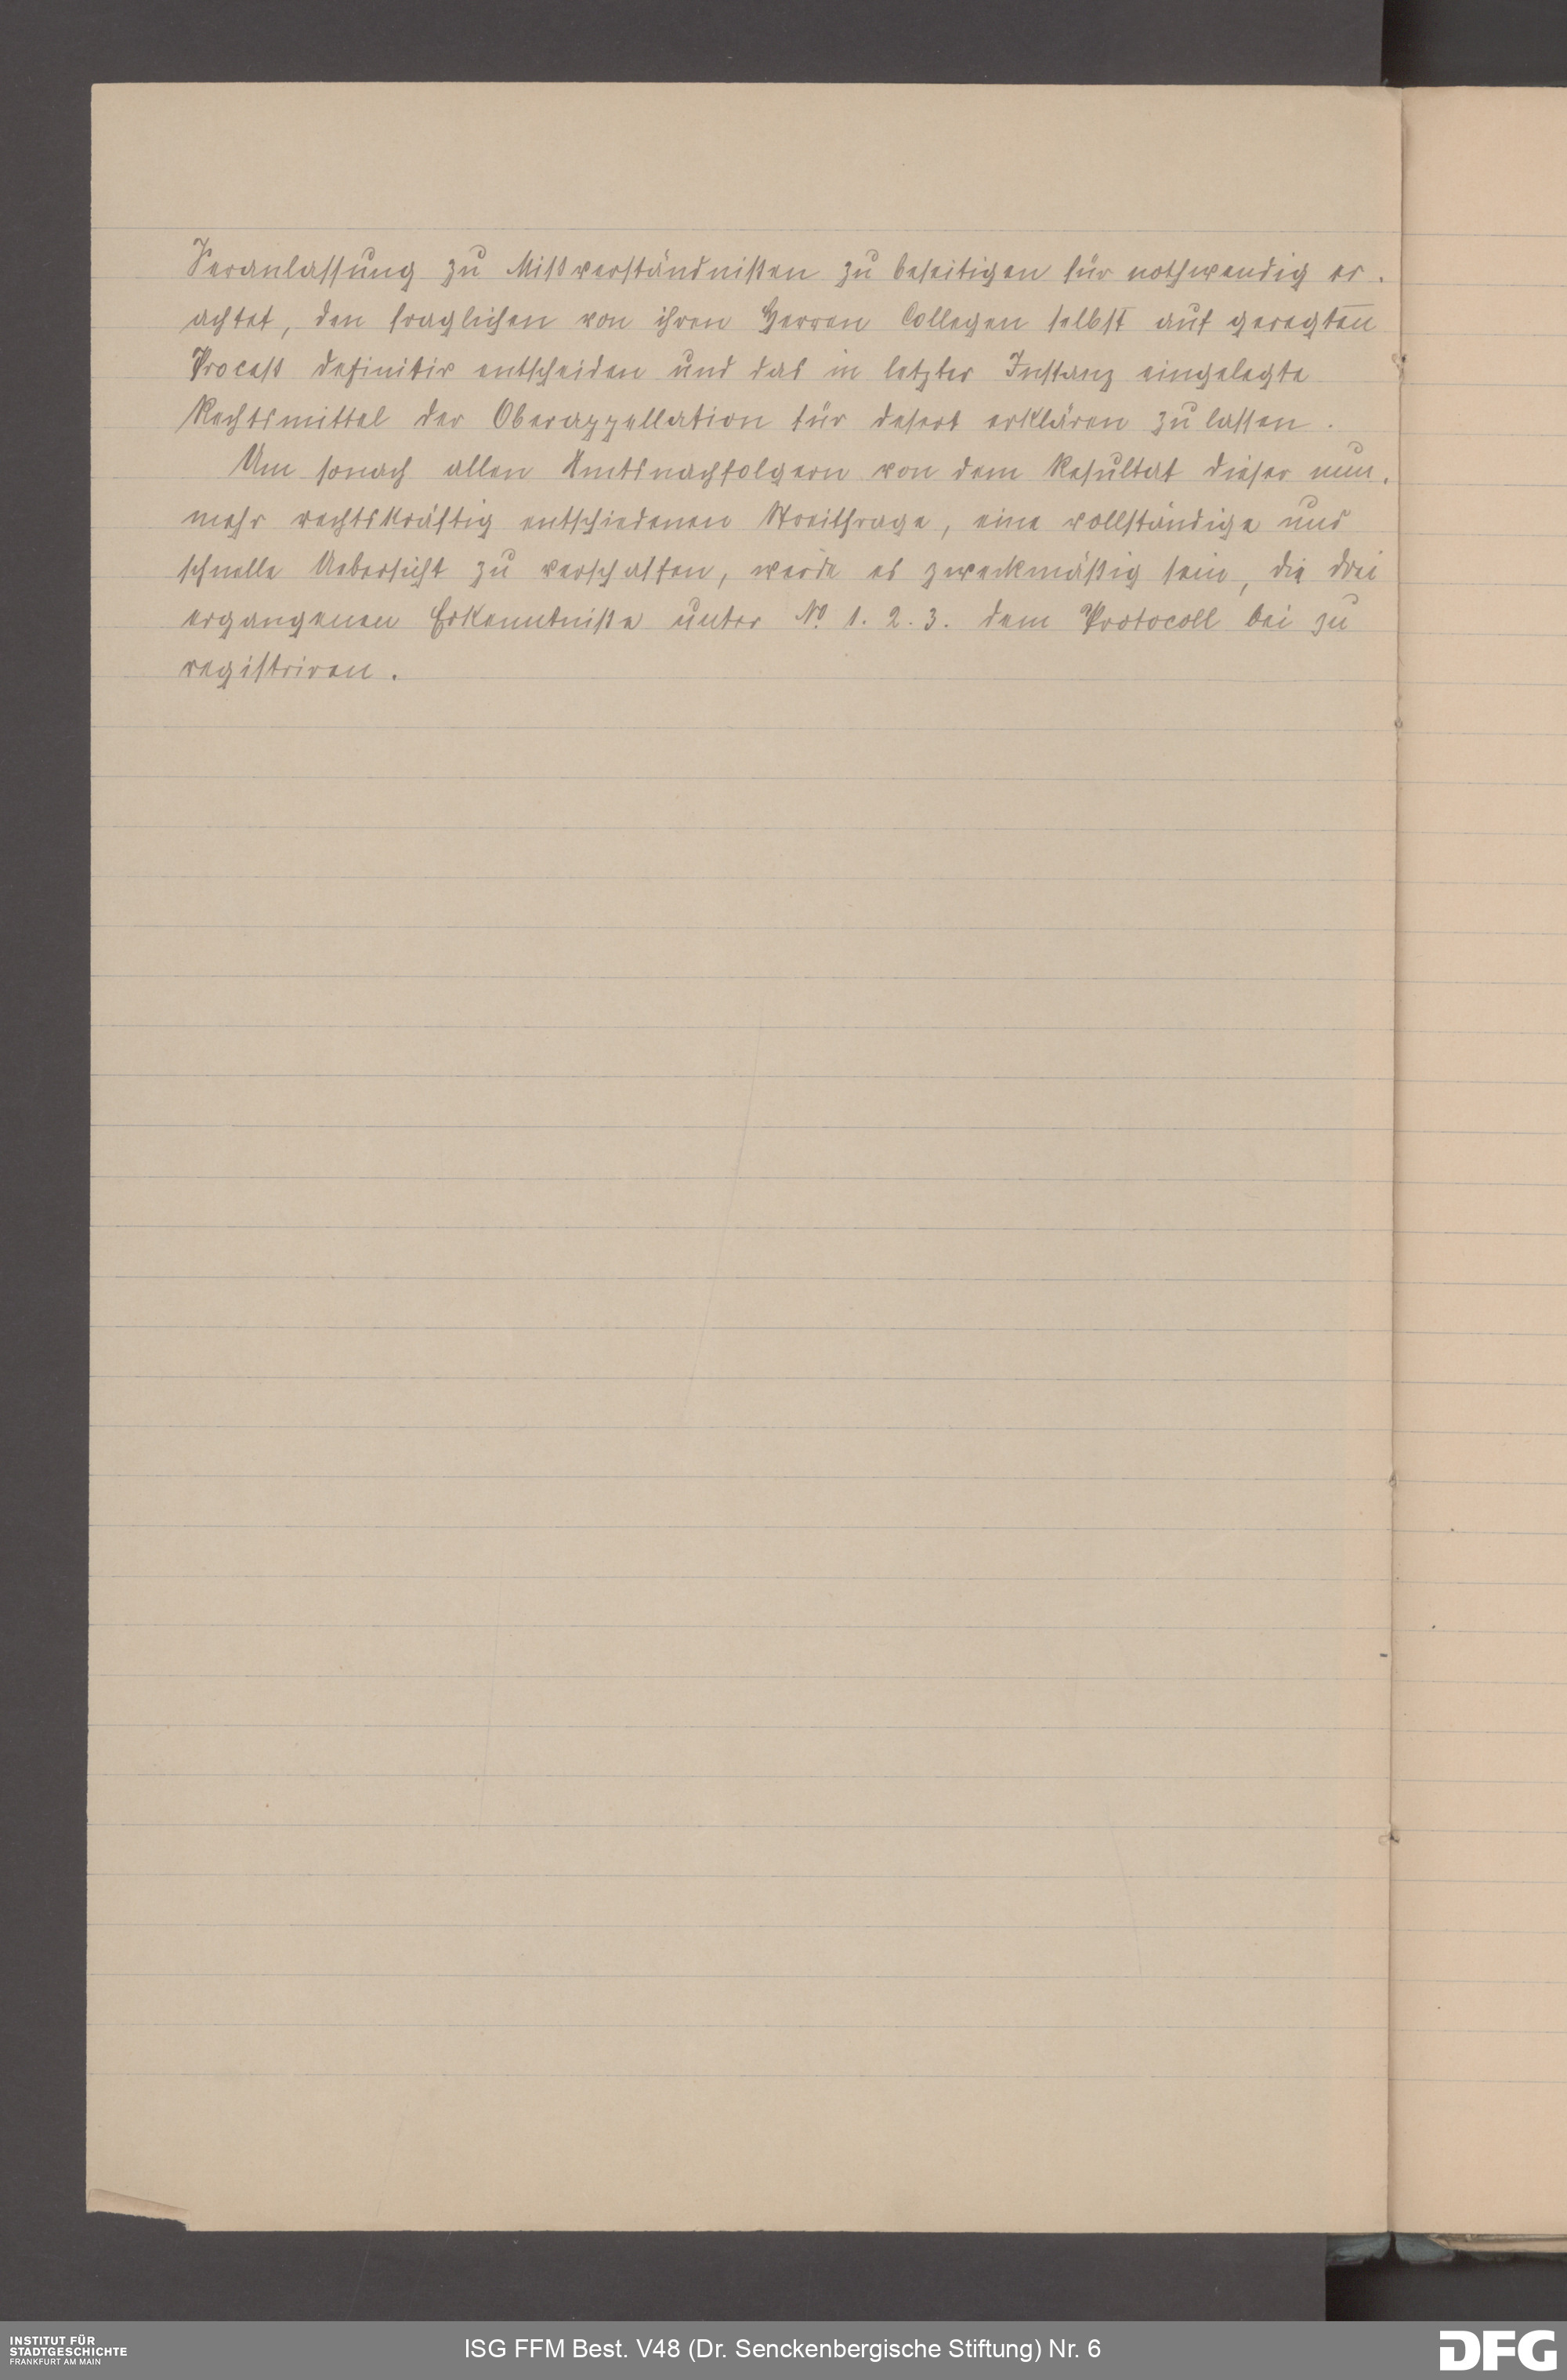 Veranlassung zu Mißverständnißen zu beseitigen für nothwendig er.
achtet, den fraglichen von ihren Herren Collegen selbst auf geregten
Proceß definitiv entscheiden und das in letzter Instanz eingelegte
Rechtsmittel der Oberappellation für desert erklären zu lassen.
Um sonach allen Amtsnachfolgern von dem Resultat dieser nun.
mehr rechtskräftig entschiedenen Streitfrage, eine vollständige und
schnelle Uebersicht zu verschaffen, werde es zweckmäßig sein, die drei
ergangenen Erkenntniße unter No. 1. 2. 3. dem Protocoll bei zu
registriren.
INSTITUT FÜR
STADTGESCHICHTE
FRANKFURT AM MAIN
ISG FFM Best. V48 (Dr. Senckenbergische Stiftung) Nr. 6
DFG